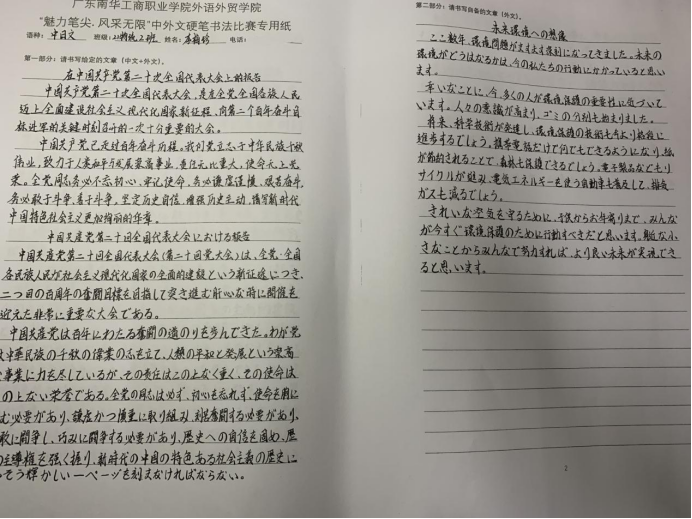 广东南华工商职业学院外语外贸学院
“魅力笔尖.风采无限”中外文硬笔书法比赛专用纸
语种：中日文 班级： 姓名： 电话：
第一部分：请书写给定的文章（中文+外文）。
在中国共产党第二十次全国代表大会上的报告
中国共产党第二十次全国代表大会，是在全党全国各族人民
迈上全面建设社会主义现代化国家新征程、向第二个百年奋斗目
标进军的关键时刻召开的一次十分重要的大会。
中国共产党已走过百年奋斗历程。我们党立志于中华民族千秋
伟业，致力于人类和平与发展崇高事业，责任无比重大，使命无上光
荣。全党同志务必不忘初心、牢记使命，务必谦虚谨慎、艰苦奋斗，
务必敢于斗争、善于斗争，坚定历史自信，增强历史主动，谱写新时代
中国特色社会主义更加绚丽的华章。
中国共産党第二十回全国代表大会における報告
中国共産党第二十回全国代表大会（第二十回党大会）は、全党・全国
各民族人民が社会主義現代化国家の全面的建設という新征途につき、
二つ目の百周年の奮闘目標を目指して突き進む肝心な時に開催を
迎えた非常に重要な大会である。
中国共産党は百年にわたる奮闘の道のりを歩んできた。わが党
は中華民族の千秋の偉業の志を立て、人類の平和と発展という崇高
な事業に力を尽しているが、その責任はこの上なく重く、その使命は
の上ない栄誉である。全党の同志は必ず、初心を忘れず、使命を胸に
む必要があり、謙虚かつ慎重に取り組み、刻苦奮闘する必要があり、
敢に闘争し、巧みに闘争する必要があり、歴史への自信を固め、歴
の主導権を強く握り、新時代の中国の特色ある社会主義の歴史に
っそう輝かしい一ページを刻まなければならない。
第二部分：请书写自备的文章（外文）。
未来環境への想像
ここ数年、環境問題がますます深刻になってきました。未来の
環境がどうなるかは、今の私たちの行動にかかっていると思い
ます。
幸いなことに、今、多くの人が環境保護の重要性に気づいて
います。人々の意識が高まり、ゴミの分別も始まりました。
将来、科学技術が発達し、環境保護の技術も今より格段に
進歩するでしょう。携帯電話だけで何でもできるようになり、紙
が節約されることで、森林も保護できるでしょう。電子製品などもリ
サイクルが進み、電気エネルギーを使う自動車も普及して、排気
ガスも減るでしょう。
きれいな空気を守るために、子供からお年寄りまで、みんな
が今すぐ環境保護のために行動すべきだと思います。身近な小
さなことからみんなで努力すれば、より良い未来が実現でき
ると思います。
2